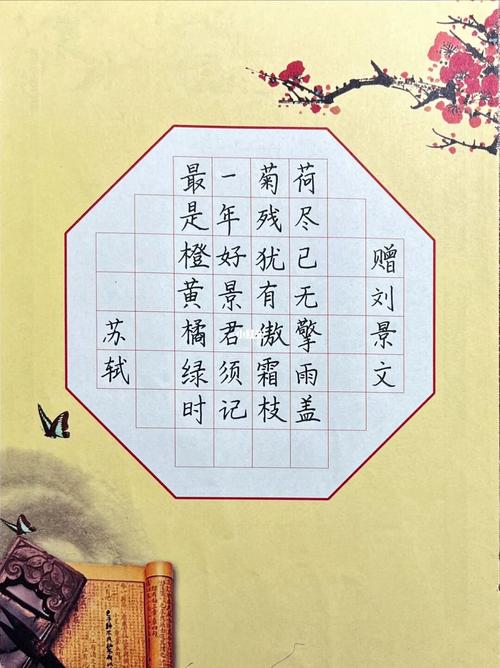 赠刘景文
荷尽已无擎雨盖
菊残犹有傲霜枝
一年好景君须记
最是橙黄橘绿时
苏轼